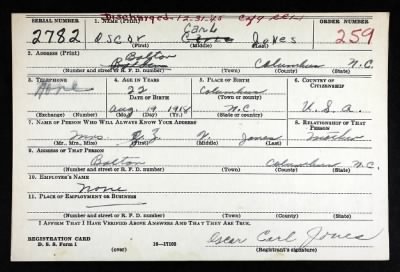 Discharged 12-31-45
SERIAL NUMBER 1. NAME (Print) ORDER NUMBER
2782 Oscar Carl Jones 259
(First) (Middle) (Last)
2. ADDRESS (Print)
Bolton Columbus N.C.
(Number and street or R. F. D. number) (Town) (County) (State)
3. TELEPHONE 4. AGE IN YEARS 5. PLACE OF BIRTH 6. COUNTRY OF CITIZENSHIP
None 22 Columbus
DATE OF BIRTH (Town or county)
Aug. 19 1918 N.C. U.S.A.
(Exchange) (Number) (Mo.) (Day) (Yr.) (State or country)
7. NAME OF PERSON WHO WILL ALWAYS KNOW YOUR ADDRESS 8. RELATIONSHIP OF THAT PERSON
Mrs. Jones Mother
(Mr., Mrs., Miss) (First) (Middle) (Last)
9. ADDRESS OF THAT PERSON
Bolton Columbus N.C.
(Number and street or R. F. D. number) (Town) (County) (State)
10. EMPLOYER'S NAME
None
11. PLACE OF EMPLOYMENT OR BUSINESS
(Number and street or R. F. D. number) (Town) (County) (State)
I AFFIRM THAT I HAVE VERIFIED ABOVE ANSWERS AND THAT THEY ARE TRUE.
REGISTRATION CARD
D. S. S. Form 1 (over) 16-17105
Oscar Carl Jones
(Registrant's signature)